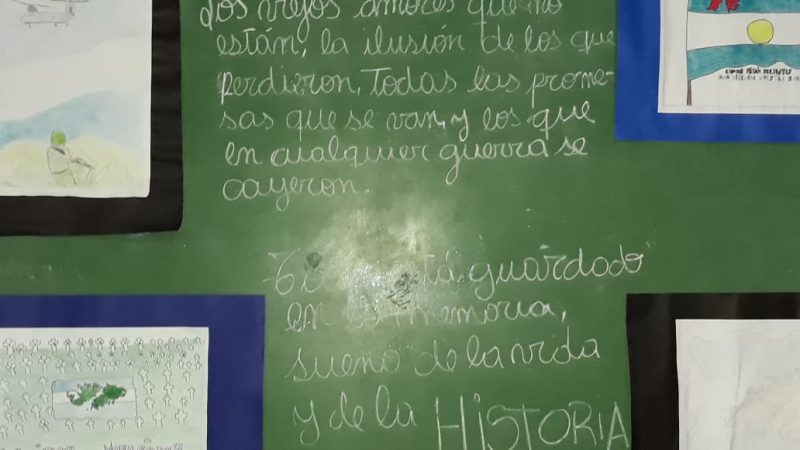 Los viejos amores que no
están, la ilusión de los que
perdieron, todas las prome-
sas que se van, y los que
en cualquier guerra se
cayeron.
guardado
en la memoria,
sueño de la vida
y de la HISTORIA